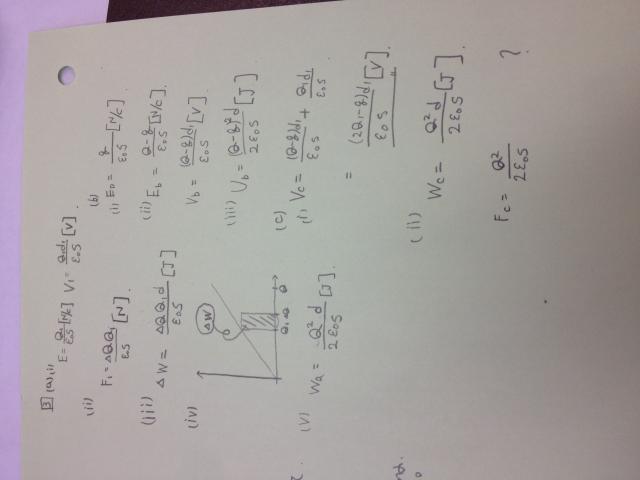 3 (a)(i)
E = Q₁/ε₀S [N/C] V₁ = Q₁d₁/ε₀S [V].
(ii)
F₁ = ΔQQ₁/ε₀S [N].
(iii) ΔW = ΔQQ₁d/ε₀S [J]
(iv)
ΔW
Q
(v) Wa = Q²d/2ε₀S [J].
(b)
(i) Ea = q/ε₀S [N/C]
(ii) Eb = Q-q/ε₀S [N/C].
Vb = (Q-q)d₁/ε₀S [V].
(iii) Ub = (Q-q)²d/2ε₀S [J]
(c)
(i) Vc = (Q-q)d₁/ε₀S + Q₁d₁/ε₀S
= (2Q₁-q)d₁/ε₀S [V].
(ii) Wc = Q²d/2ε₀S [J].
Fc = Q²/2ε₀S ?